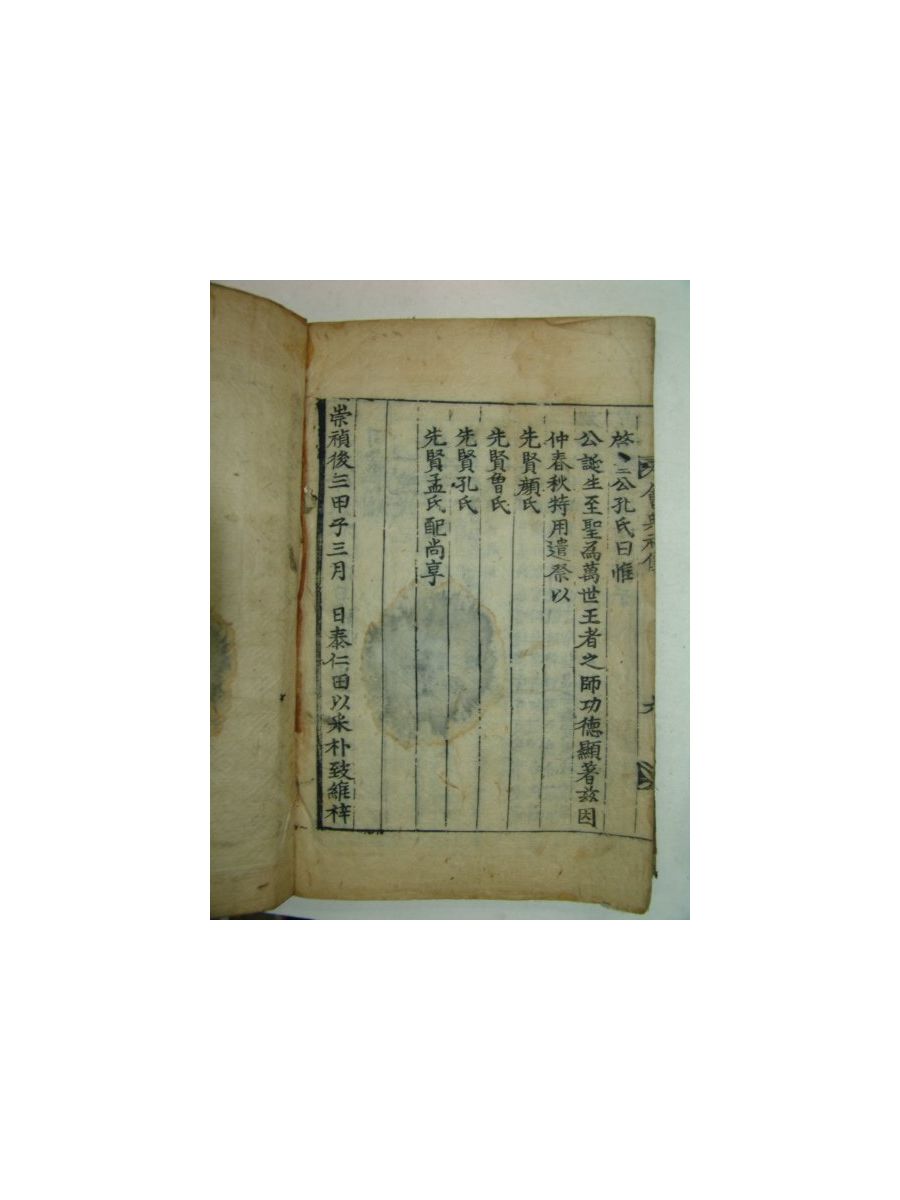 啓王公孔氏曰惟
公誕生至聖爲萬世王者之師功德顯著玆因
仲春秋特用遣祭以
先賢顔氏
先賢曾氏
先賢孔氏
先賢孟氏配尚享
崇禎後三甲子三月 日泰仁田以采朴致維梓